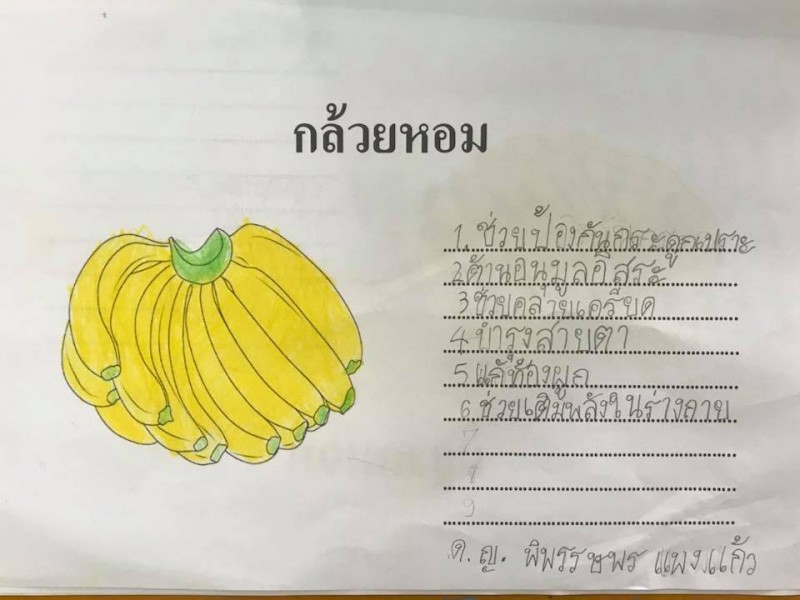 กล้วยหอม
1. ช่วยป้องกันกระดูกเปราะ
2 ต้านอนุมูลอิสระ
3 ช่วยคลายเครียด
4 บำรุงสายตา
5 แก้ท้องผูก
6. ช่วยเติมพลังในร่างกาย
7
8
9
ด.ญ. พิพรรษพร แผงแก้ว